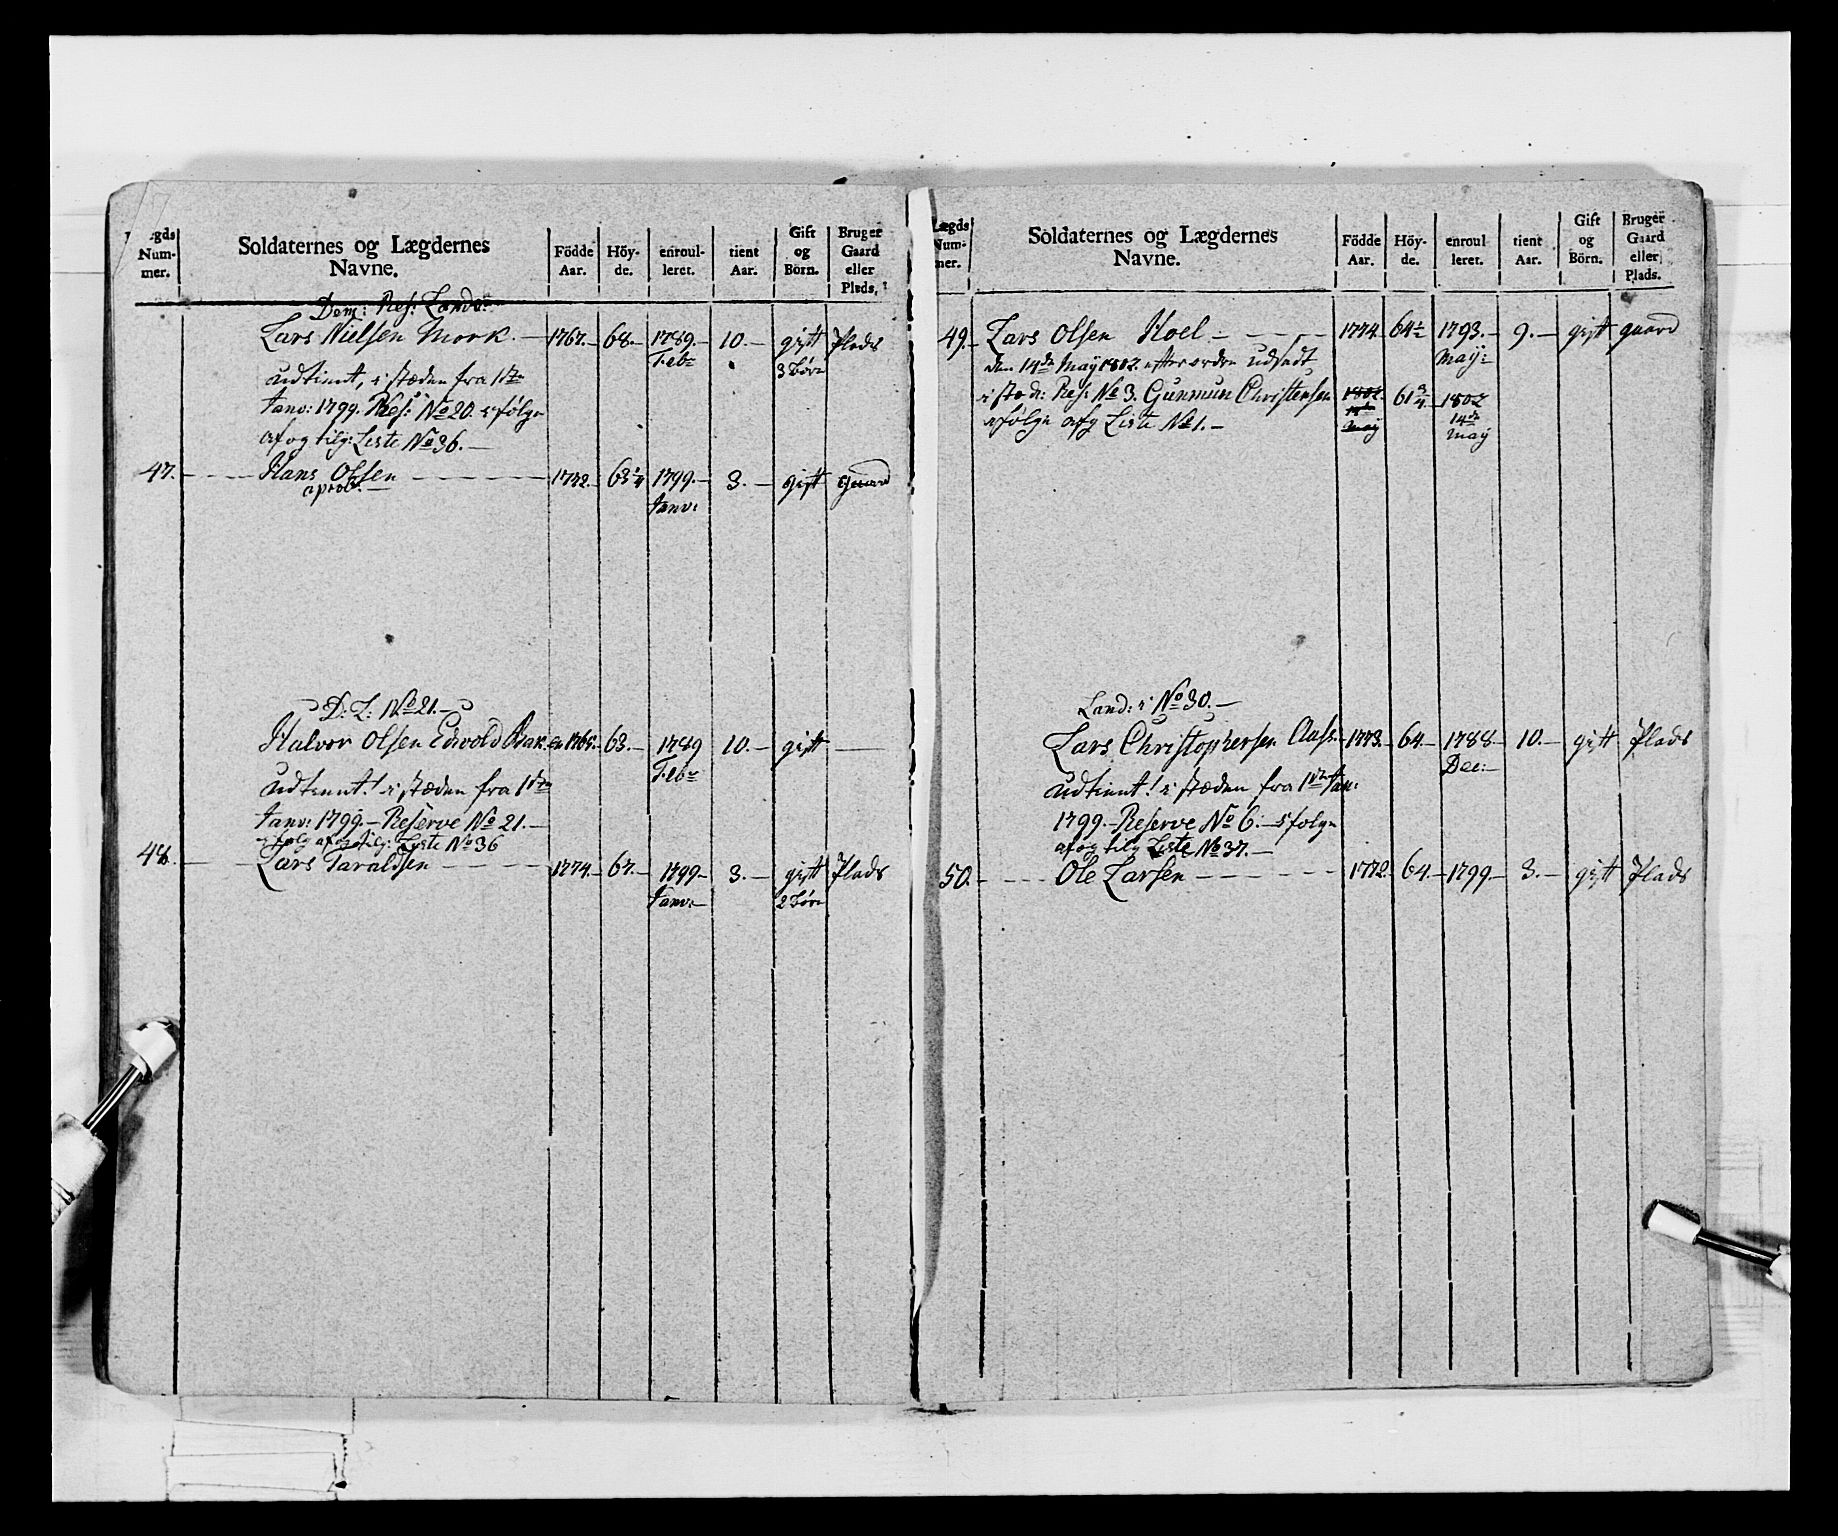 Lægds Num- mer.
Soldaternes og Lægdernes Navne.
Födde Aar.
Höy- de.
enroul- leret.
tient Aar.
Gift og Börn.
Bruger Gaard eller Plads.
Dom: Res: Lands:
Lars Nielsen Mork. — 1767. — 68. — 1789. — 10. — gift Plads
Febr 3 Börn
udtient, i stæden fra 1ste
Janv: 1799. Res: No 20. efölge
af og tilg: Liste No 36. —
47. — Hans Olsen — 1772. — 63 1/4 1799. — 3. — gift Gaard
aprob. — Janv:
D: L: No 21. —
Halvor Olsen Edvold Bak 1765. 63. — 1789 10. — gift —
Febr
udtient! i stæden fra 1ste
Janv: 1799. — Reserve No 21. —
efölg af og tilg: Liste No 36
48. — Lars Taraldsen — 1774. — 67. — 1799 — 3. — gift Plads
Janv: — 2 Börn
Lægds Num- mer.
Soldaternes og Lægdernes Navne.
Födde Aar.
Höy- de.
enroul- leret.
tient Aar.
Gift og Börn.
Bruger Gaard eller Plads.
49. — Lars Olsen Hoel — 1774 64 1/2 1793. — 9. — gift gaard
den 14de May 1802. efter ordre udsadt May:
i stæd: Res: No 3. Gunmun Christensen 1802 61 3/4 1802
efölge afg Liste No 1. — May 14de May
Land: i No 30. —
Lars Christophersen Aass. 1773. — 64. — 1788 — 10. — gift Plads
Dec: —
udtient! i stæden fra 1ste Jan:
1799. — Reserve No 6. — efölge
af og tilg Liste No 37. —
50. — Ole Larsen — 1772. 64. — 1799. — 3. — gift Plads